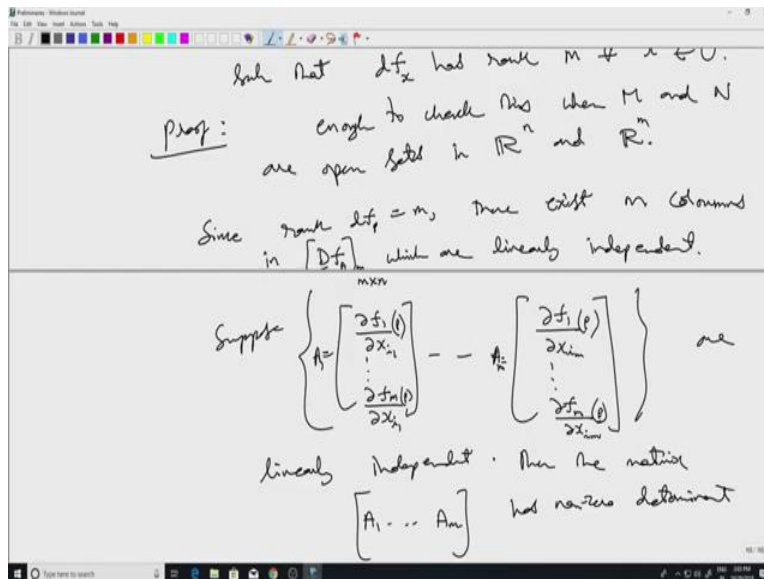 Preliminaries - Windows Journal
File Edit View Insert Actions Tools Help
such that df_x has rank m ∀ x ∈ U.
Proof : enough to check this when M and N
are open sets in ℝ^n and ℝ^m.
Since rank df_p = m, there exist m coloumns
in [Df_p]_{m×n} which are linearly independent.
Suppose { A_1 = [ ∂f_1(p)/∂x_{i_1} ⋮ ∂f_m(p)/∂x_{i_1} ] - - A_m = [ ∂f_1(p)/∂x_{i_m} ⋮ ∂f_m(p)/∂x_{i_m} ] } are
linearly independent. Then the matrix
[ A_1 . . . A_m ] has non-zero determinant
Type here to search